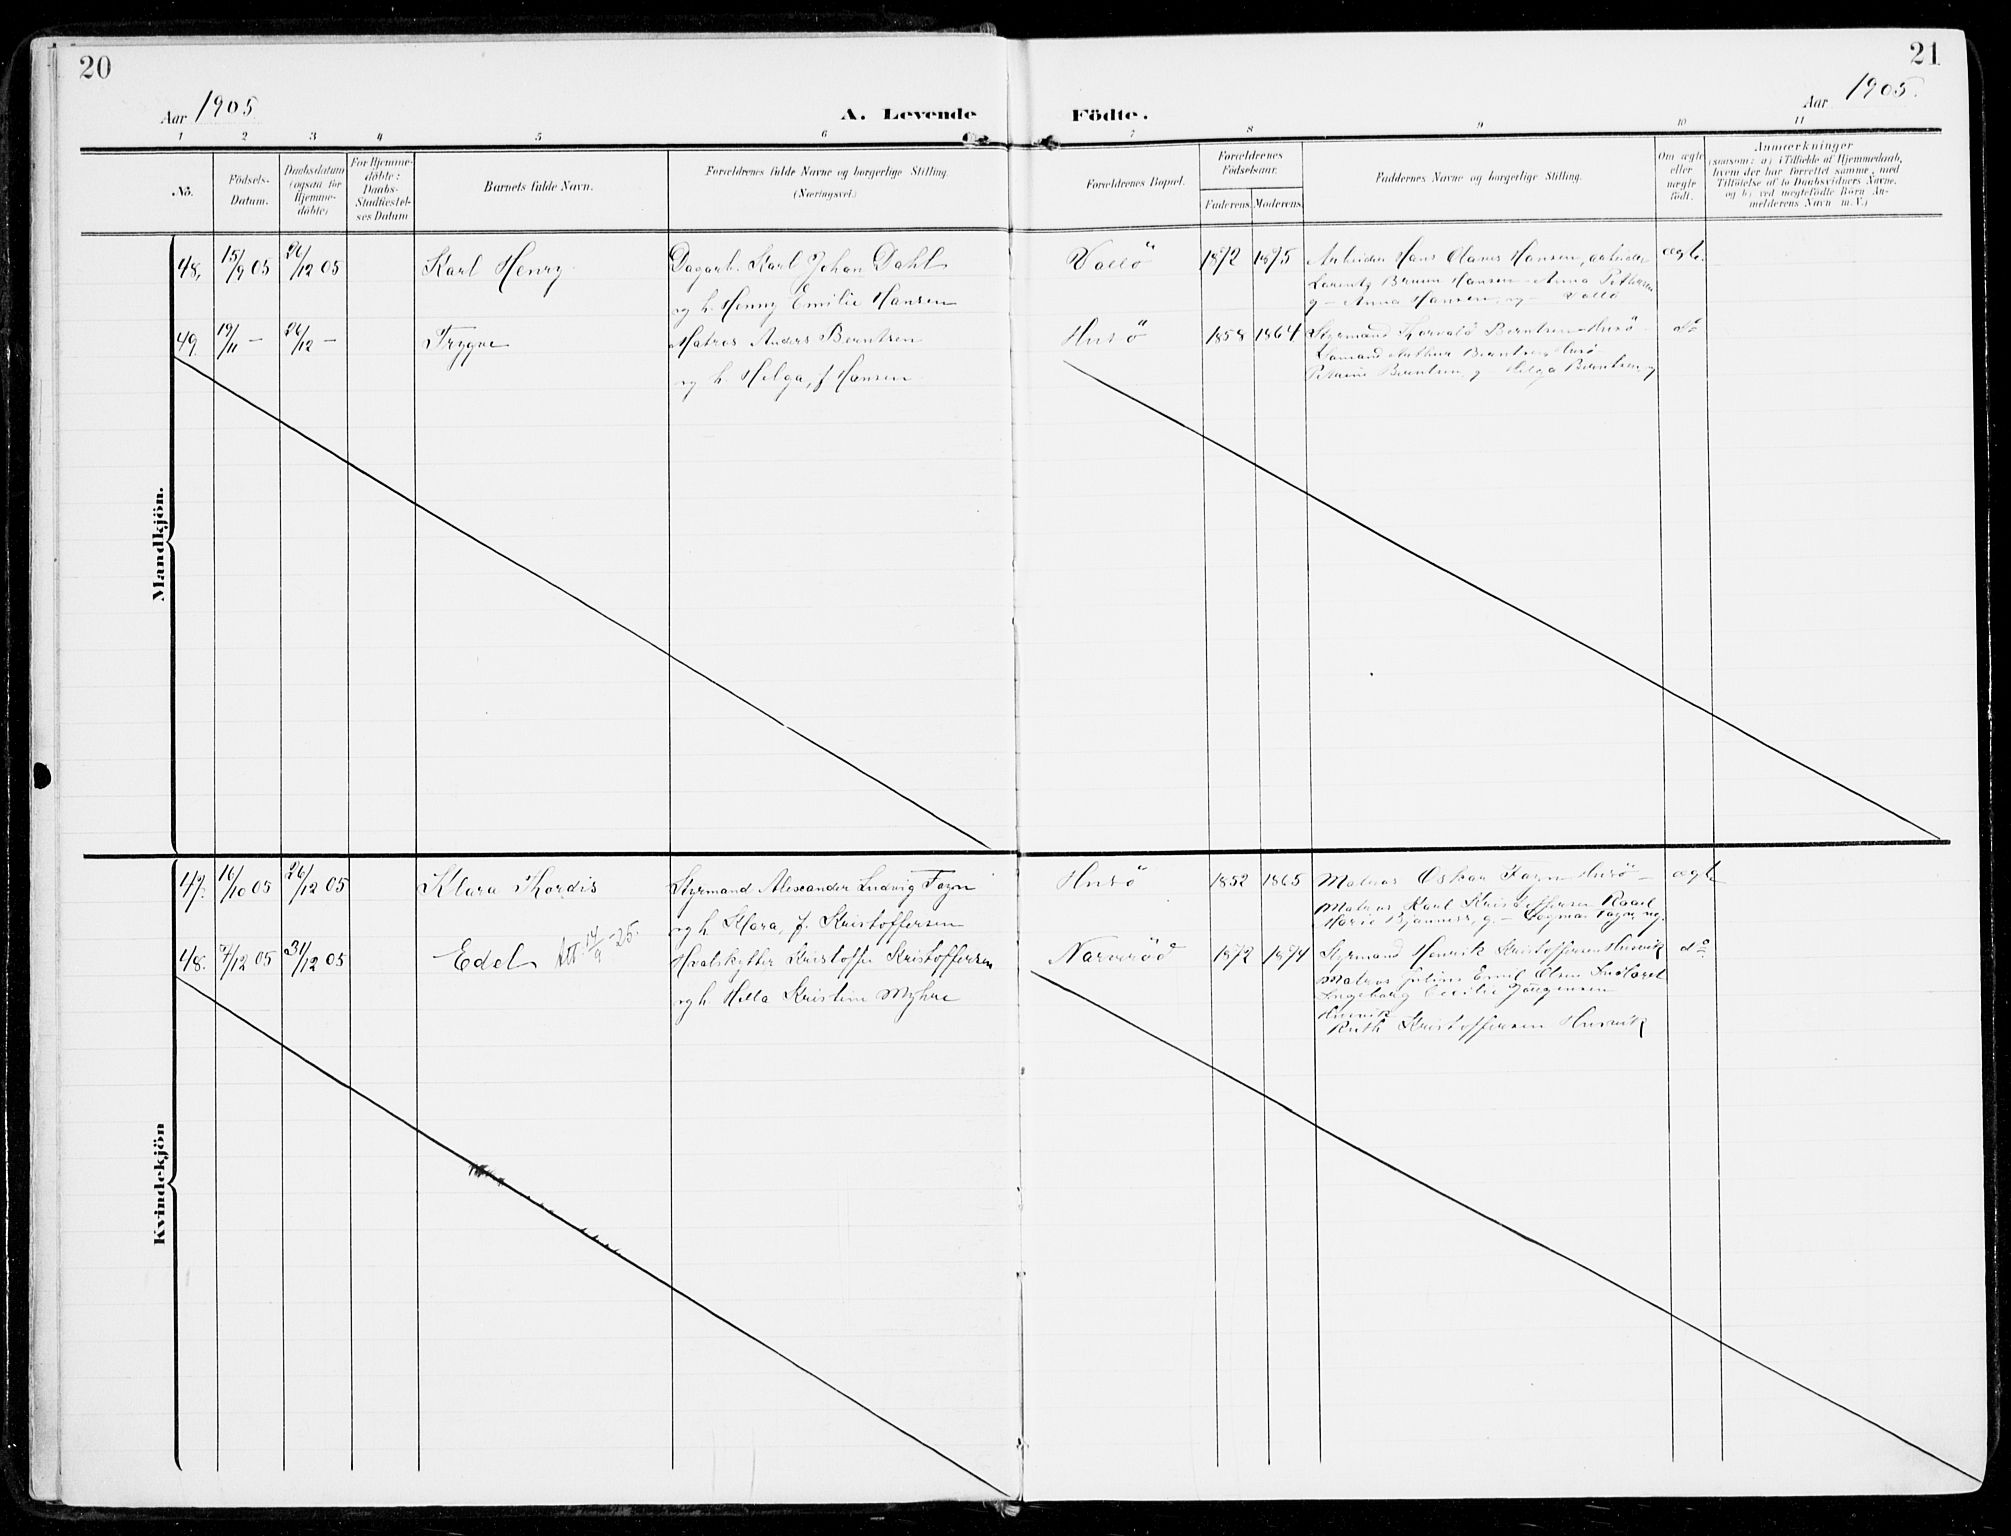 20
21
Aar 1905.
A. Levende
Födte.
Aar 1905.
1 2 3 4 5 6 7 8 9 10 11
No.
Födsels-
Datum.
Daabsdatum
(ogsaa for
Hjemme-
döbte)
For Hjemme-
döbte:
Daabs-
Stadfæstel-
ses Datum
Barnets fulde Navn.
Forældrenes fulde Navne og borgerlige Stilling.
(Næringsvei.)
Forældrenes Bopæl.
Forældrenes
Födselsaar.
Faderens. Moderens.
Faddernes Navne og borgerlige Stilling.
Om ægte
eller
uægte
födt.
Anmærkninger
(saasom: a) i Tilfælde af Hjemmedaab,
hvem der har forrettet samme, med
Tilföielse af to Daabsvidners Navne,
og b) ved uægtefödte Börn An-
melderens Navn m. V.)
Mandkjön.
48. 15/9 05 26/12 05 Karl Henry Dagarb. Karl Johan Dahl Vallö 1872 1875 Arbeider Hans Olaves Hansen, arbeider ægte
og h. Henny Emilie Hansen Lorentz Bruun Hansen Anna Pettersen
g – Anna Hansen, ug – Vallö
49. 19/11 – 26/12 – Trygve Matros Anders Berntsen Husö 1858 1864 Styrmand Thorvald Berntsen Husö – do
og h. Helga, f. Hansen Arthur Berntsen Husö
Berntsen, g – Helga Berntsen, ug
Kvindekjön
47. 16/10 05 26/12 05 Klara Thordis Styrmand Alexander Ludvig Fagn Husö 1852 1865 Matros Oskar Fagn Husö – ægte
og h. Klara, f. Kristoffersen Matros Karl Kristoffersen Roael
Marie Bjønness, g. – Dagmar Fagn, ug.
48. 7/12 05 31/12 05 Edel Att. 14/9 – 25. Hvalskytter Kristoffer Kristoffersen Narverød 1872 1874 Styrmand Henrik Kristoffersen Husvik do
og h. Hilla Kristine Myhre Matros Julius Emil Olsen
Ingeborg Cecilie Jörgensen
Husvik
Ruth Kristoffersen Husvik